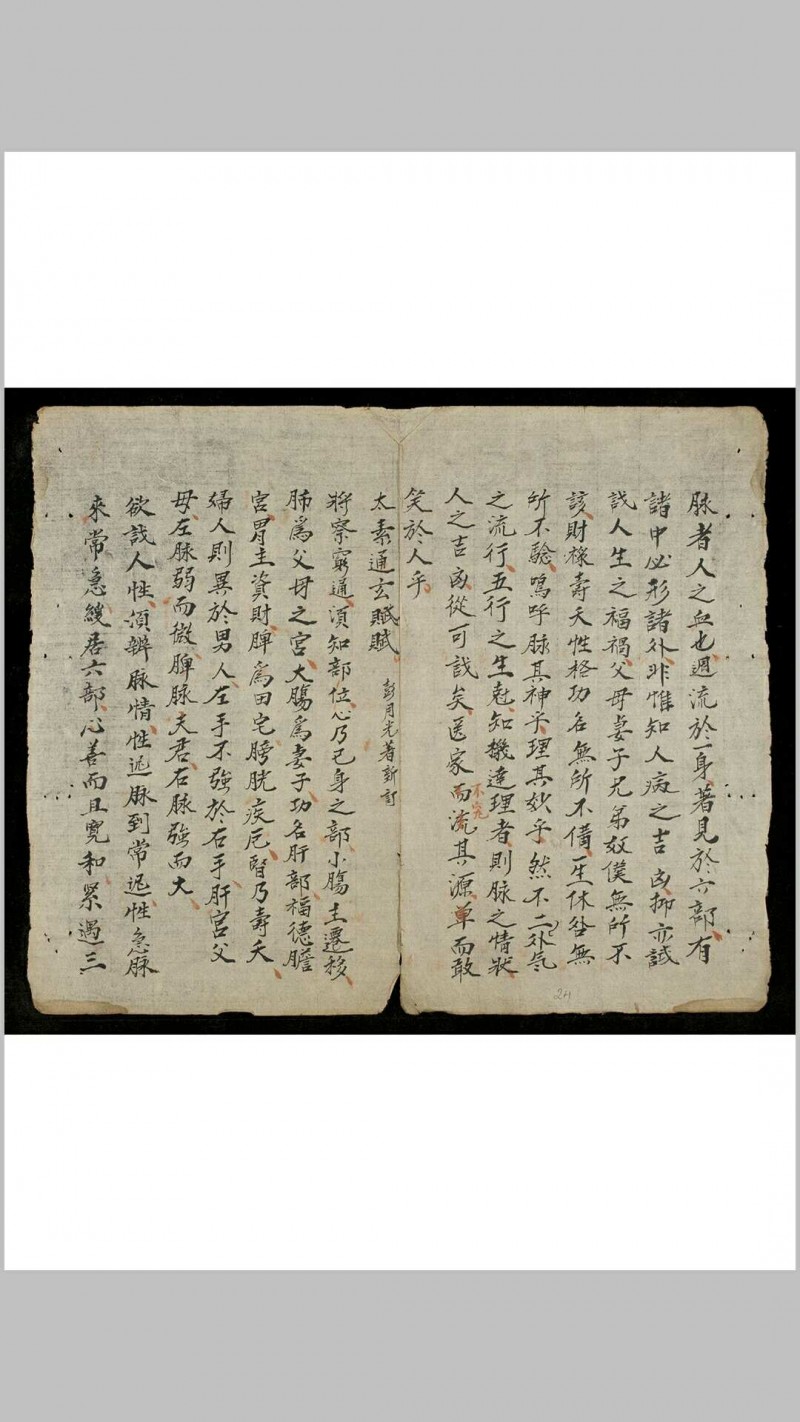 脉者人之血也週流於一身著見於六部有
諸中必形諸外非惟知人病之吉凶抑亦識
識人生之福禍父母妻子兄弟奴僕無所不
該財祿壽夭性格功名無所不備一生休咎無
所不驗嗚呼脉其神乎理其妙乎然不二外氣
之流行五行之生尅知機達理者則脉之情狀
人之吉凶從可識矣医家不究而流其源單而敢
笑於人乎
太素通玄賦賦 彭月光著新訂
將察窮通須知部位心乃己身之部小腸主遷移
肺爲父母之宮大腸爲妻子功名肝部福德膽
宮胃主資財脾爲田宅膀胱疾厄腎乃壽夭
婦人則異於男人左手不強於右手肝宮父
母左脉弱而微脾脉夫君右脉強而大
欲識人性須辨脉情性遲脉到常遲性急脉
來常急緩居六部心善而且寬和緊過三
24